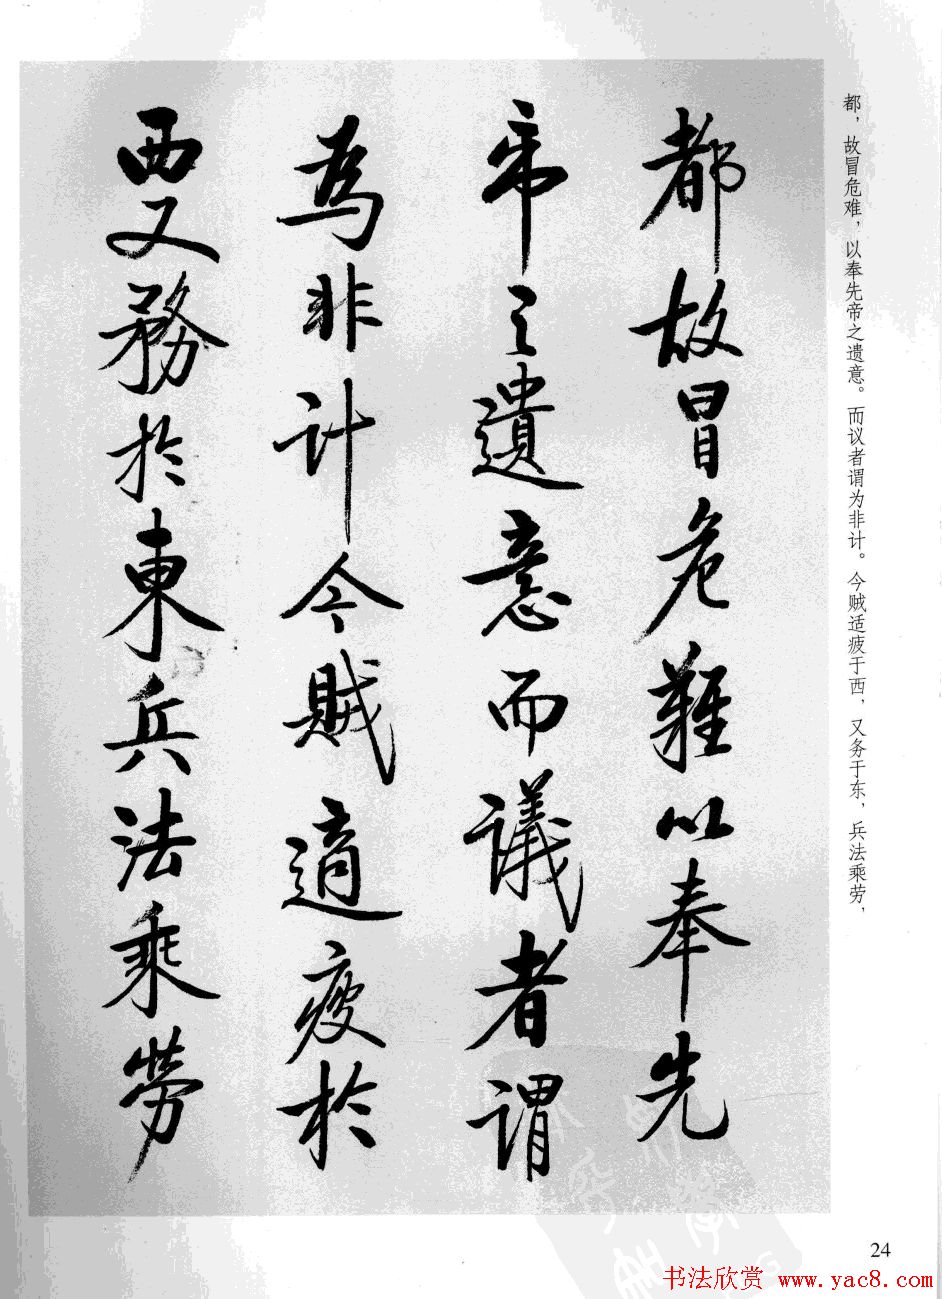 都故冒危難以奉先
帝之遺意而議者謂
為非計今賊適疲於
西又務於東兵法乘勞
都，故冒危难，以奉先帝之遗意。而议者谓为非计。今贼适疲于西，又务于东，兵法乘劳，
24
书法欣赏 www.yac8.com